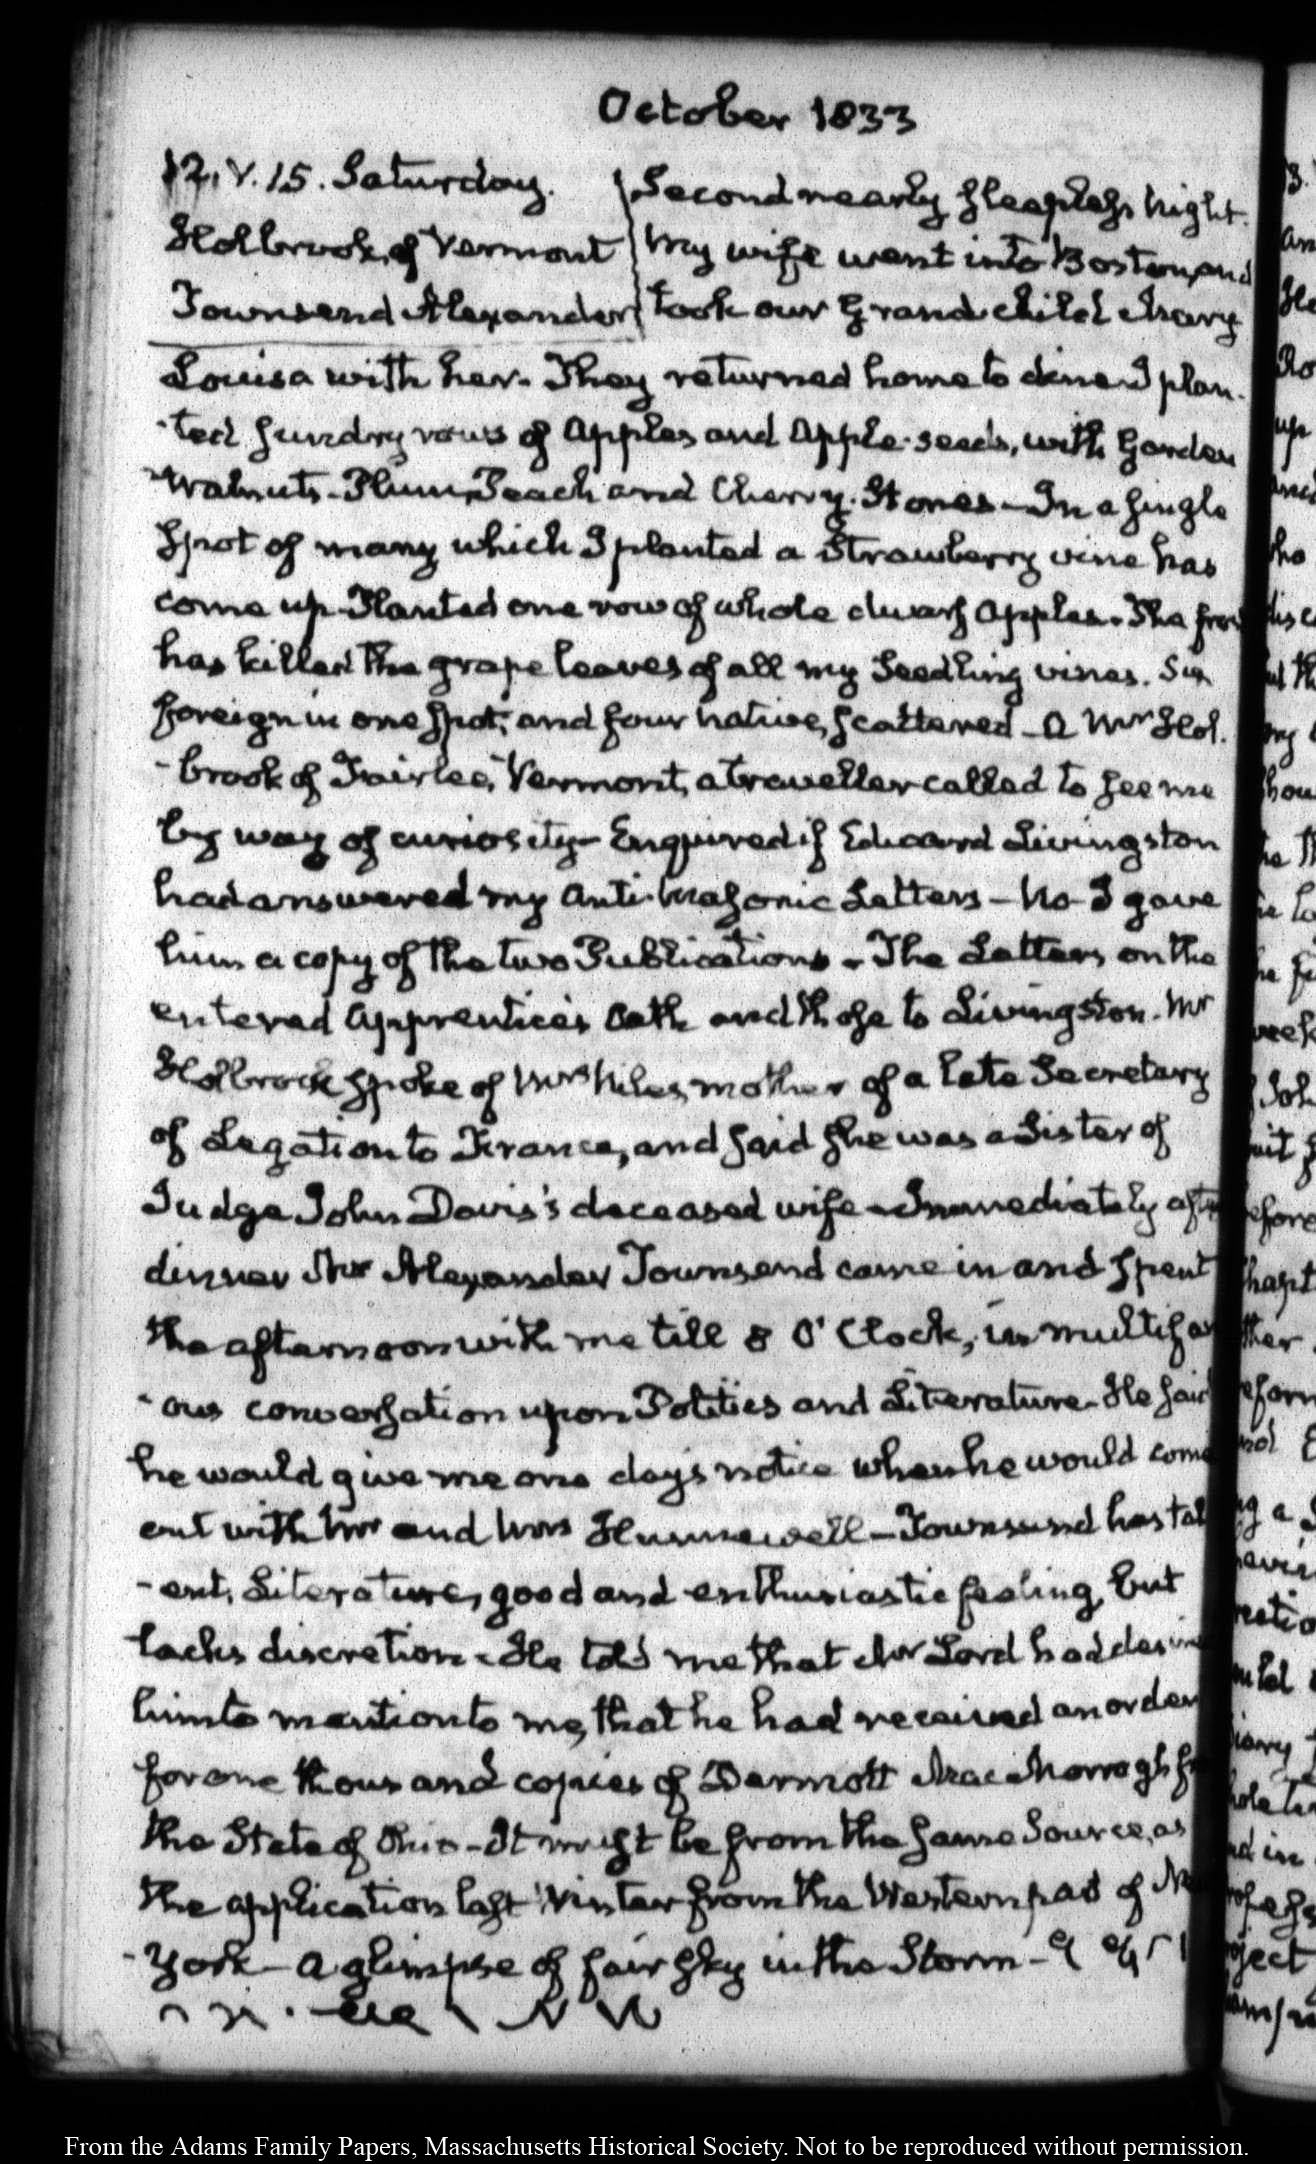 October 1833
12. V. 15. Saturday.
Holbrook, of Vermont
Townsend Alexander
Second nearly sleepless night.
My wife went into Boston, and
took our Grandchild Mary
Louisa with her. They returned home to dine. I plan-
-ted sundry rows of Apples and Apple-seeds, with Garden
Walnuts. Plum, Peach and Cherry-Stones – In a single
Spot of many which I planted a Strawberry vine has
come up. Planted one row of whole dwarf Apples. The
has killed the grape leaves of all my Seedling vines. Six
foreign in one spot, and four native, scattered – A Mr Hol-
-brook of Fairlee, Vermont, a traveller called to see me
by way of curiosity – Enquired if Edward Livingston
had answered my Anti-Masonic Letters – No – I gave
him a copy of the two Publications – The Letters on the
entered Apprentice's Oath and those to Livingston. Mr
Holbrook spoke of Mrs Niles, mother of a late Secretary
of Legation to France, and said she was a Sister of
Judge John Davis's deceased wife – Immediately after
dinner Mr Alexander Townsend came in and spent
the afternoon with me till 8 O'Clock, in multifar
-ous conversation upon Politics and Literature – He said
he would give me one day's notice when he would come
out with Mr and Mrs Hunnewell – Townsend has tal
-ent, Literature, good and enthusiastic feeling, but
lacks discretion – He told me that Mr Lord had
him to mention to me, that he had received an order
for one thousand copies of Dermott MacMorrogh
the State of Ohio – It must be from the same Source, as
the application last Winter from the Western part of New
-York – A glimpse of fair sky in the Storm –
From the Adams Family Papers, Massachusetts Historical Society. Not to be reproduced without permission.